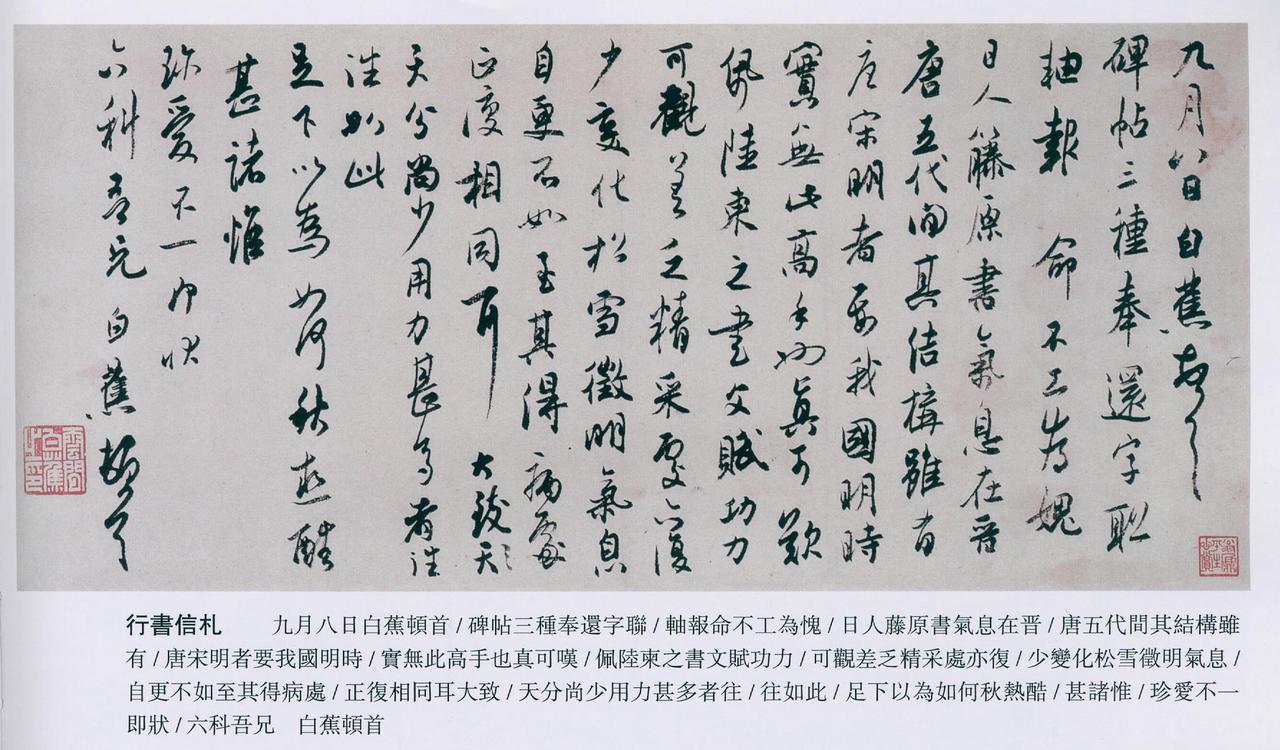 九月八日白蕉頓首
碑帖三種奉還字聯
軸報命不工為愧
日人籐原書氣息在晉
唐五代間其结構雖有
唐宋明者要我國明時
實無此高手也真可歎
佩陸柬之書文賦功力
可觀差乏精采處亦復
少變化松雪徵明氣息
自更不如至其得病處
正復相同耳大致天
天分尚少用力甚多者往
往如此
足下以為如何秋熱酷
甚諸惟
珍愛不一即狀
六科吾兄白蕉頓首
行書信札　九月八日白蕉頓首/碑帖三種奉還字聯/軸報命不工為愧/日人藤原書氣息在晉/唐五代間其結構雖
有/唐宋明者要我國明時/實無此高手也真可嘆/佩陸柬之書文賦功力/可觀差乏精采處亦復/少變化松雪徵明氣息/
自更不如至其得病處/正復相同耳大致/天分尚少用力甚多者往/往如此/足下以為如何秋熱酷/甚諸惟/珍愛不一
即狀/六科吾兄　白蕉頓首